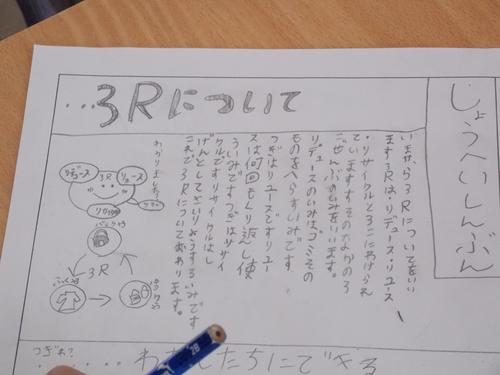 しょうへいしんぶん
...3Rについて
いまから3Rについてをいい
ます3Rは・リデュース・リユース
・リサイクルと3こにわけられ
ていますそのなかの3
こぜんぶのいみをいいます。
リデュースのいみはゴミその
ものをへらすいみです
つぎはリユースですリユー
スは何回もくり返し使
ういみですつぎはリサイ
クルですリサイクルはし
げんとしてさいりようするいみです
これで3Rについておわります。
3R
リユース
3R
つぎわ?
......わたしたちにできる
2B